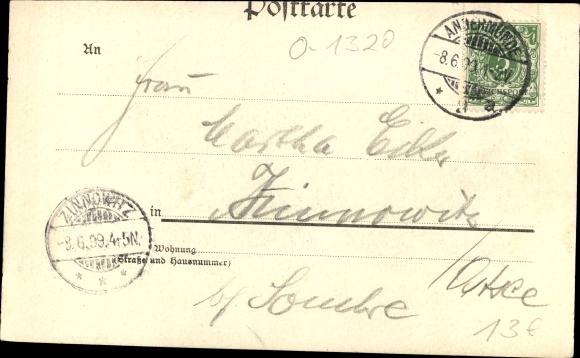 Postkarte
An
O-1320
ANGERMÜNDE
8.6.99.
5
REICHSPOST
Frau
Martha
in Zinnowitz
ZINNOWITZ
-8.6.99.4-5N.
Wohnung
(Straße und Hausnummer)
Ostsee
b/
13€